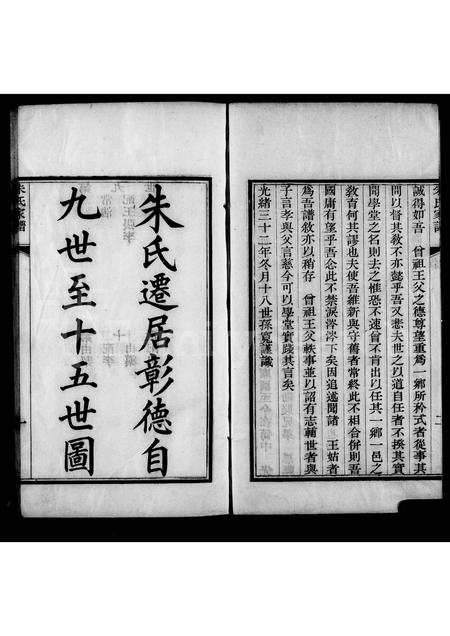 誠得如吾　曾祖王父之德尊望重為一鄉所矜式者從事其
間以督其敎不亦懿乎吾又悲夫世之以道自任者不揆其實
聞學堂之名則去之惟恐不速曾不肯出以任其一鄉一邑之
敎育何其謬也夫使吾維新與守舊者常終此不相合併則吾
國庸有望乎吾念此不禁淚涔涔下矣因追述聞諸　王姑者
為吾譜敘亦以稍存　曾祖王父軼事並以詔有志輔世者與
子言孝與父言慈今可以學堂實踐其言矣
光緒三十二年冬月十八世孫寬謹識
朱氏遷居彰德自
九世至十五世圖
朱氏家譜